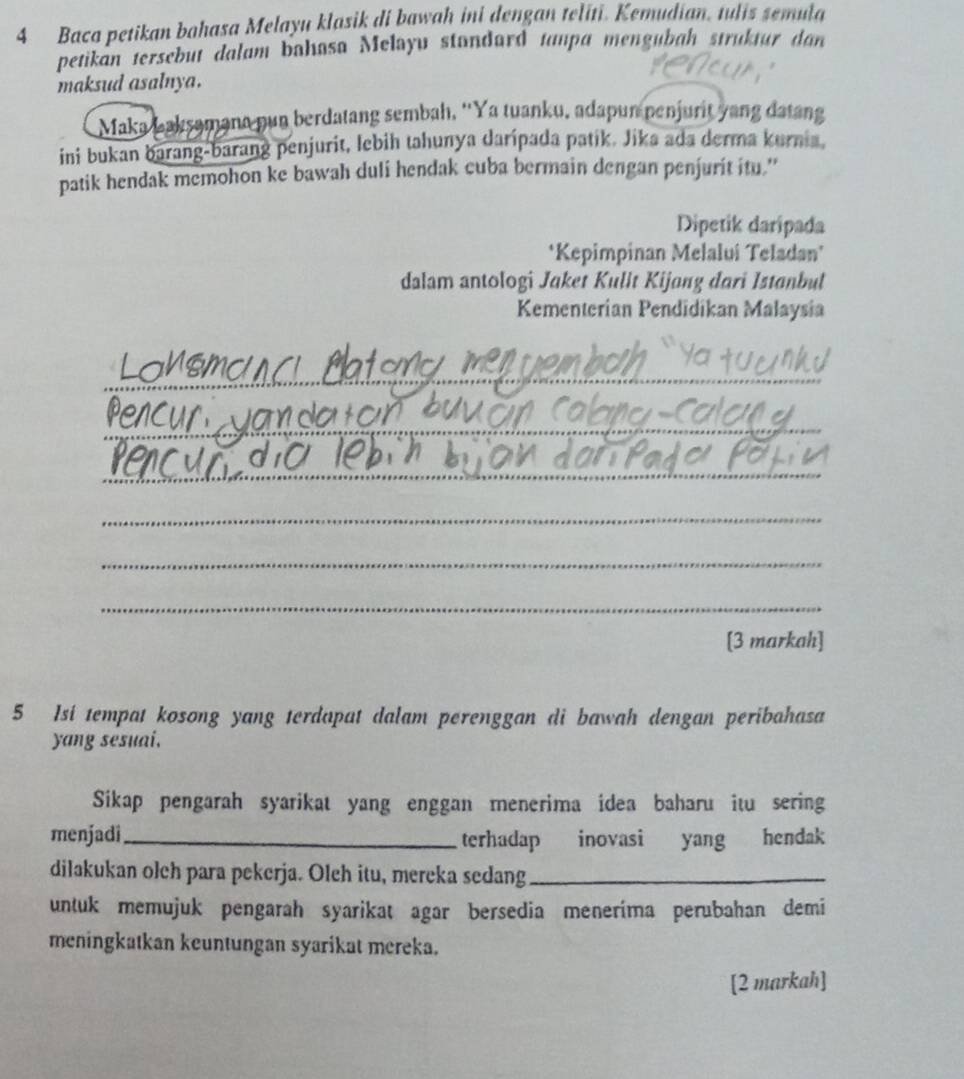 4 Baca petikan bahasa Melayu klasik di bawah ini dengan teliti. Kemudian, tulis semula
petikan tersebut dalam bahasa Melayu standard tanpa mengubah struktur dan
maksud asalnya.
pencuri
Maka Laksamana pun berdatang sembah, "Ya tuanku, adapun penjurit yang datang
ini bukan barang-barang penjurit, lebih tahunya daripada patik. Jika ada derma kurnia,
patik hendak memohon ke bawah duli hendak cuba bermain dengan penjurit itu."
Dipetik daripada
'Kepimpinan Melalui Teladan'
dalam antologi Jaket Kulit Kijang dari Istanbul
Kementerian Pendidikan Malaysia
datang menyembah "Ya tuanku
Pencuri yan datan calang-calang
Pencuri, dia lebih bijan daripada
[3 markah]
5 Isi tempat kosong yang terdapat dalam perenggan di bawah dengan peribahasa
yang sesuai.
Sikap pengarah syarikat yang enggan menerima idea baharu itu sering
menjadi terhadap inovasi yang hendak
dilakukan oleh para pekerja. Oleh itu, mereka sedang
untuk memujuk pengarah syarikat agar bersedia menerima perubahan demi
meningkatkan keuntungan syarikat mereka.
[2 markah]